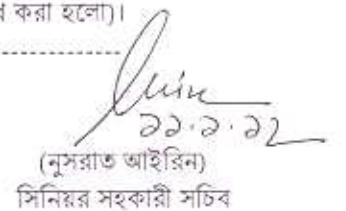 করা হলো)।
১১.১.১২
(নুসরাত আইরিন)
সিনিয়র সহকারী সচিব